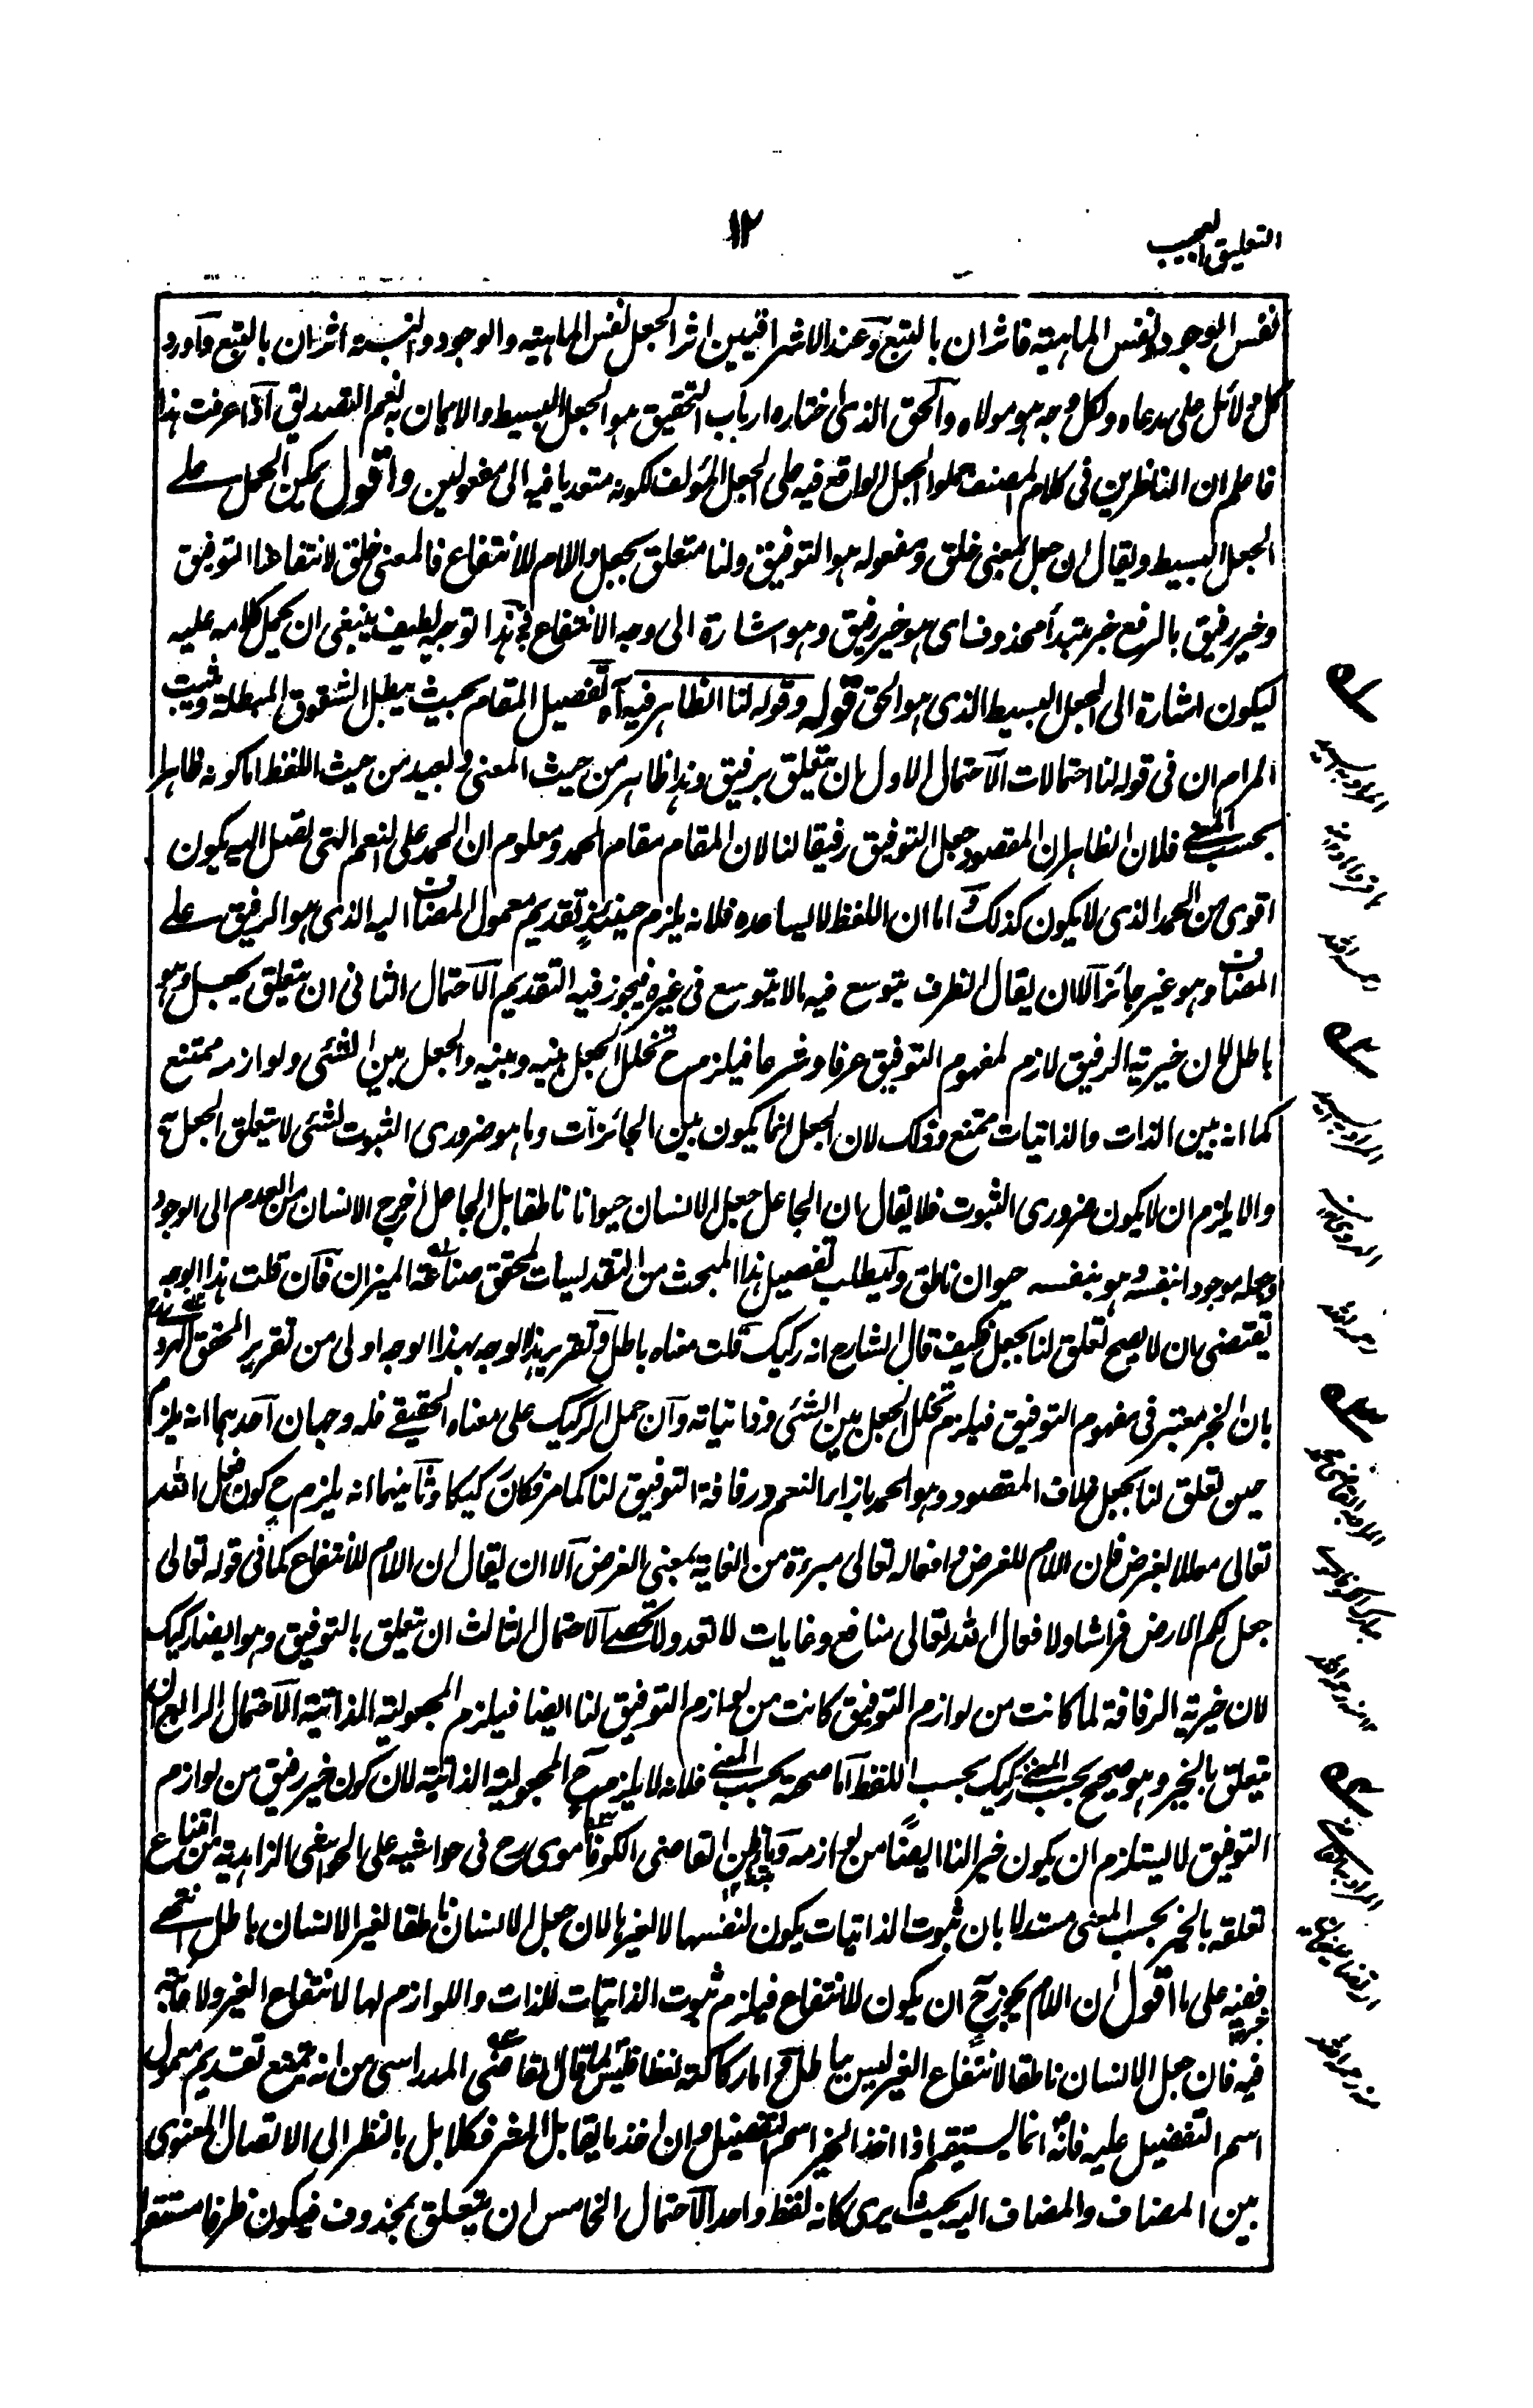 التعليق العجيب
١٢
نفس الوجود ونفس الماهية فاثران بالتبع وعند الاشراقيين اثر الجعل نفس الماهية والوجود والنسبة اثران بالتبع واورد
كل دلائل على مدعاه ولكل وجهة هو مولاه والحق الذى اختاره ارباب التحقيق هو الجعل البسيط والايمان به نعم التصديق اذا عرفت هذا
فاعلم ان الناظرين فى كلام المصنف حملوا الجعل الواقع فيه على الجعل المؤلف لكونه متعديا فيه الى مفعولين واقول يمكن الحمل على
الجعل البسيط ويقال ان جعل بمعنى خلق ومفعوله هو التوفيق ولنا متعلق بجعل واللام للانتفاع فالمعنى خلق لانتفاعنا التوفيق
وخير رفيق بالرفع خبر مبتدأ محذوف اى هو خير رفيق وهو اشارة الى وجه الانتفاع فهذا توجيه لطيف ينبغى ان يحمل كلامه عليه
ليكون اشارة الى الجعل البسيط الذى هو الحق قوله وقوله لنا الظاهر فيه آه تفصيل المقام بحيث يبطل الشقوق المبطلة ويثبت
المرام ان فى قوله لنا احتمالات الاحتمال الاول ان يتعلق برفيق وهذا ظاهر من حيث المعنى وبعيد من حيث اللفظ اما كونه ظاهرا
بحسب المعنى فلان الظاهر ان المقصود جعل التوفيق رفيقا لنا لان المقام مقام الحمد ومعلوم ان الحمد على النعم التى تصل اليه يكون
اقوى من الحمد الذى لا يكون كذلك واما ان اللفظ لا يساعده فلانه يلزم حينئذ تقديم معمول المضاف اليه الذى هو الرفيق على
المضاف وهو غير جائز الا ان يقال الظرف يتوسع فيه ما لا يتوسع فى غيره فيجوز فيه التقديم الاحتمال الثانى ان يتعلق بجعل وهو
باطل لان خيرية الرفيق لازم لمفهوم التوفيق عرفا وشرعا فيلزم ح تخلل الجعل بينه وبينه والجعل بين الشئ ولوازمه ممتنع
كما انه بين الذات والذاتيات ممتنع وذلك لان الجعل انما يكون بين الجائزات وما هو ضرورى الثبوت لشئ لا يتعلق الجعل به
والا يلزم ان لا يكون ضرورى الثبوت فلا يقال ان الجاعل جعل الانسان حيوانا ناطقا بل الجاعل اخرج الانسان من العدم الى الوجود
وجعله موجودا بنفسه وهو بنفسه حيوان ناطق وليطلب تفصيل هذا المبحث من التقديسات لمحقق صناعة الميزان فان قلت هذا الوجه
يقتضى ان لا يصح تعلق لنا بجعل فكيف قال الشارح انه ركيك قلت معناه باطل وتقرير هذا الوجه بهذا الوجه اولى من تقرير المحقق الهروى
بان الخير معتبر فى مفهوم التوفيق فيلزم تخلل الجعل بين الشئ وذاتياته وان حمل الركيك على معناه الحقيقى فله وجهان احدهما انه يلزم
حين تعلق لنا بجعل خلاف المقصود وهو الحمد بازاء النعم ورفاقة التوفيق لنا كما مر فكان ركيكا وثانيهما انه يلزم ح كون فعل الله
تعالى معللا بغرض فان اللام للغرض وافعاله تعالى مبرءة من الغاية بمعنى الغرض الا ان يقال ان اللام للانتفاع كما فى قوله تعالى
جعل لكم الارض فراشا ولافعال الله تعالى منافع وغايات لا تعد ولا تحصى الاحتمال الثالث ان يتعلق بالتوفيق وهو ايضا ركيك
لان خيرية الرفاقة لما كانت من لوازم التوفيق كانت من لوازم التوفيق لنا ايضا فيلزم المجعولية الذاتية الاحتمال الرابع ان
يتعلق بالخير وهو صحيح بحسب المعنى ركيك بحسب اللفظ اما صحته بحسب المعنى فلانه لا يلزم ح المجعولية الذاتية لان كون خير رفيق من لوازم
التوفيق لا يستلزم ان يكون خيرا لنا ايضا من لوازمه وما ظن القاضى الكوفاموى رح فى حواشيه على الحواشى الزاهدية من امتناع
تعلقه بالخير بحسب المعنى مستدلا بان ثبوت الذاتيات يكون لنفسها لا لغيرها لان جعل الانسان ناطقا لغير الانسان باطل انتهى
ففيه على ما اقول ان اللام يجوز ح ان يكون للانتفاع فيلزم ثبوت الذاتيات للذات واللوازم لها لانتفاع الغير ولا خدشة
فيه فان جعل الانسان ناطقا لانتفاع الغير ليس بباطل واما ركاكته لفظا فليس لما قال القاضى المدراسى من انه يمتنع تقديم معمول
اسم التفضيل عليه فانه انما يستقيم اذا اخذ الخير اسم التفضيل وان اخذ ما يقابل الشر فكلا بل بالنظر الى الاتصال المعنوى
بين المضاف والمضاف اليه بحيث يرى كانه لفظ واحد الاحتمال الخامس ان يتعلق بمحذوف فيكون ظرفا مستقرا